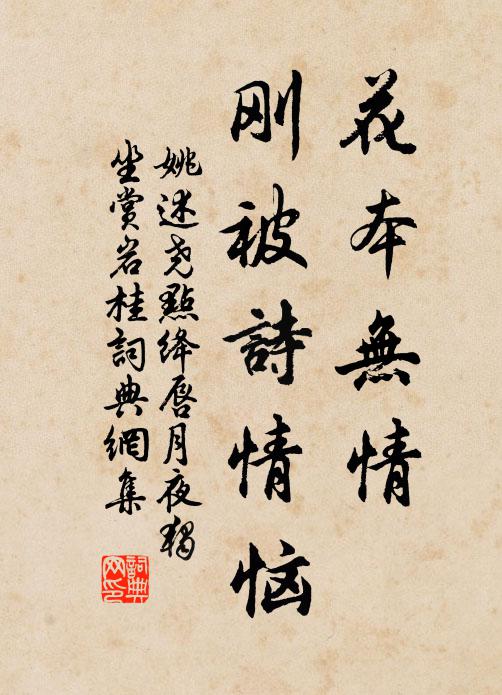 花本無情
刚被詩情恼
姚述尧點絳唇月夜獨
坐赏岩桂詞典網集
詞典
网印